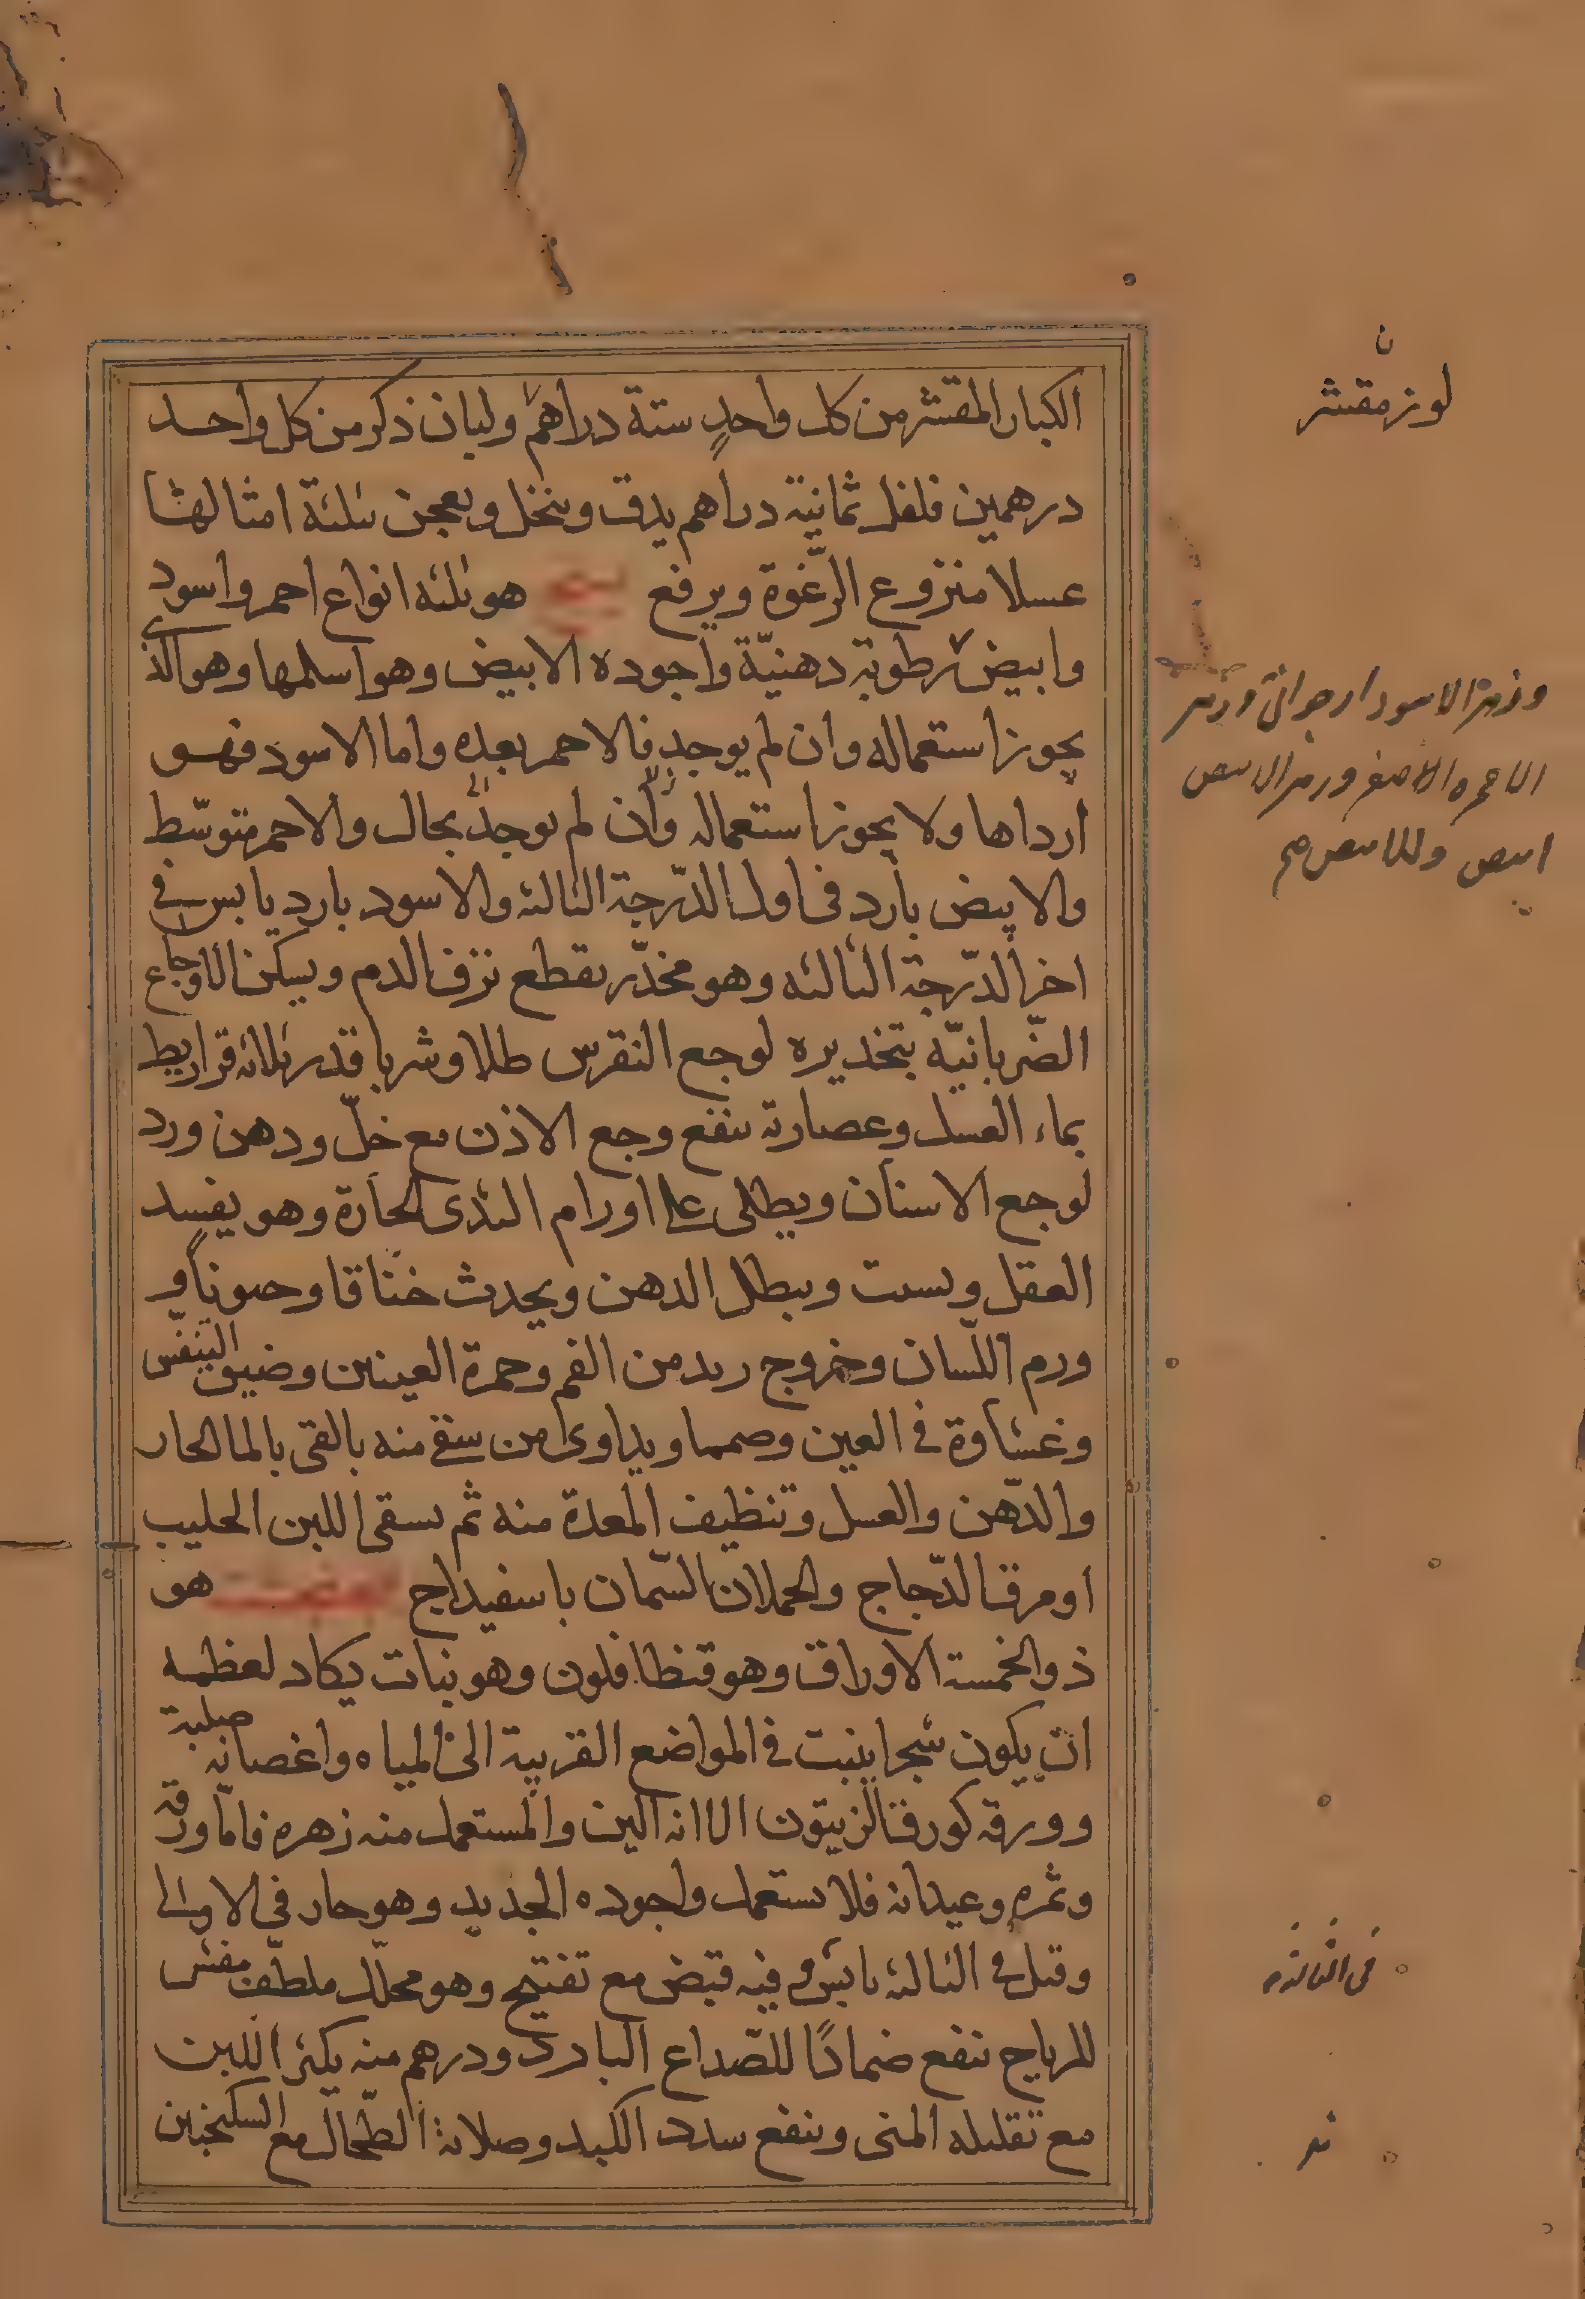 الكبار المقشر من كل واحدٍ ستة دراهم ولبان ذكر من كل واحد
درهمين فلفل ثمانية دراهم يدق وينخل ويعجن بثلثة امثالها
عسلا منزوع الرّغوة ويرفع بنج هو ثلثه انواع احمر واسود
وابيض رطوبة دهنيّة واجوده الابيض وهو اسلمها وهو الذى
يجوز استعماله وان لم يوجد فالاحمر بعده واما الاسود فهو
أرداها ولا يجوز استعماله وان لم يوجد بحال والاحمر متوسّط
والابيض بارد فى اول الدّرجة الثالثه والاسود بارد يابس في
اخر الدّرجة الثالثه وهو مخدّر يقطع نزف الدم ويسكن الاوجاع
الضّربانيّه بتخديره لوجع النقرس طلا وشربا قدر ثلاثه قراريط
بماء العسل وعصارته ينفع وجع الاذن مع خلّ ودهن ورد
لوجع الاسنان ويطلى على اورام الثدى الحارة وهو يفسد
العقل ويسبت ويبطل الدهن ويحدث خناقا وحنونا و
ورم اللّسان وخروج زبد من الفم وحمرة العينين وضيق التنفّس
وغشاوة في العين وصمما ويداوى من سقى منه بالقى بالما الحار
والدّهن والعسل وتنظيف المعدة منه ثم يسقى اللبن الحليب
او مرق الدّجاج والحملان السّمان باسفيداج بنجنكشت هو
ذو الخمسة الاوراق وهو قنطافلون وهو نبات يكاد لعظمه
ان يكون شجرا ينبت في المواضع القريبة الى المياه واغصانه صلبة
وورقه كورق الزيتون الا انه الين والمستعمل منه زهره فامّا ورقه
وثمره وعيدانه فلا يستعمل واجوده الجديد وهو حار في الاولى
وقيل في الثالثه يابس وفيه قبض مع تفتيح وهو محلّل ملطّف مفش
للرياح ينفع ضمادًا للصّداع البارد ودرهم منه يكثر اللبن
مع تقليله المنى وينفع سدد الكبد وصلابة الطّحال مع السكنجبين
ن
لوز مقشر
وزهر الاسود ارجوانى وزهر
الاحمر الاصفر وزهر الابيض
ابيض
فى الثالثه